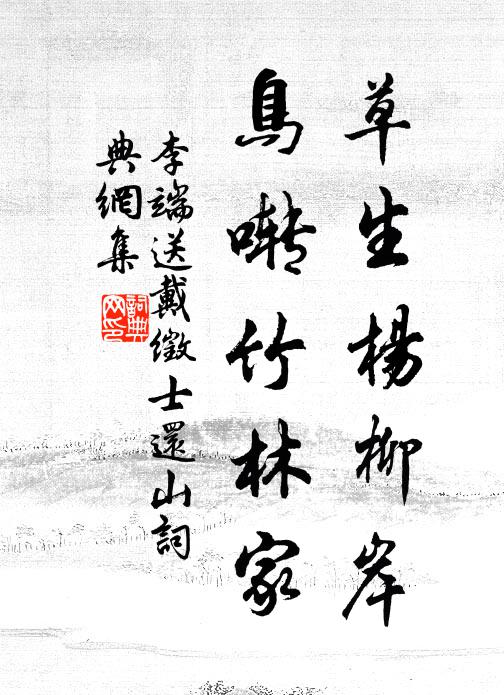 草生楊柳岸
鳥囀竹林家
李端送戴徵士還山詞
典網集
詞典
网印